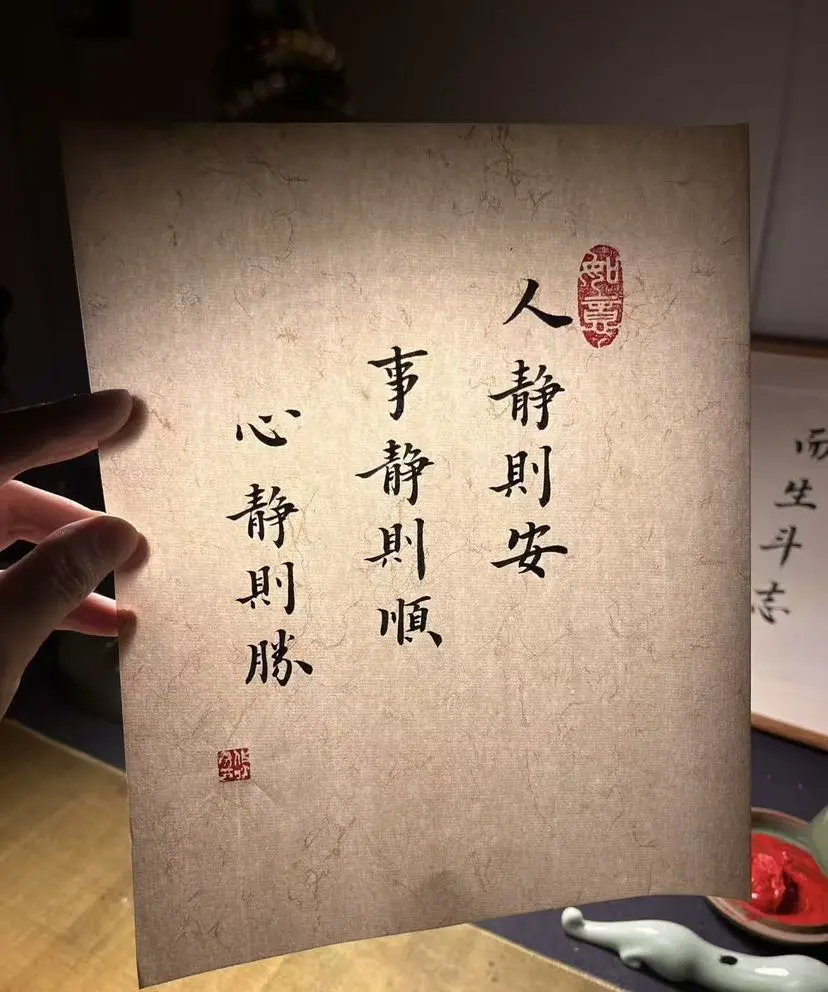 如意
人静則安
事静則順
心静則勝
生斗志